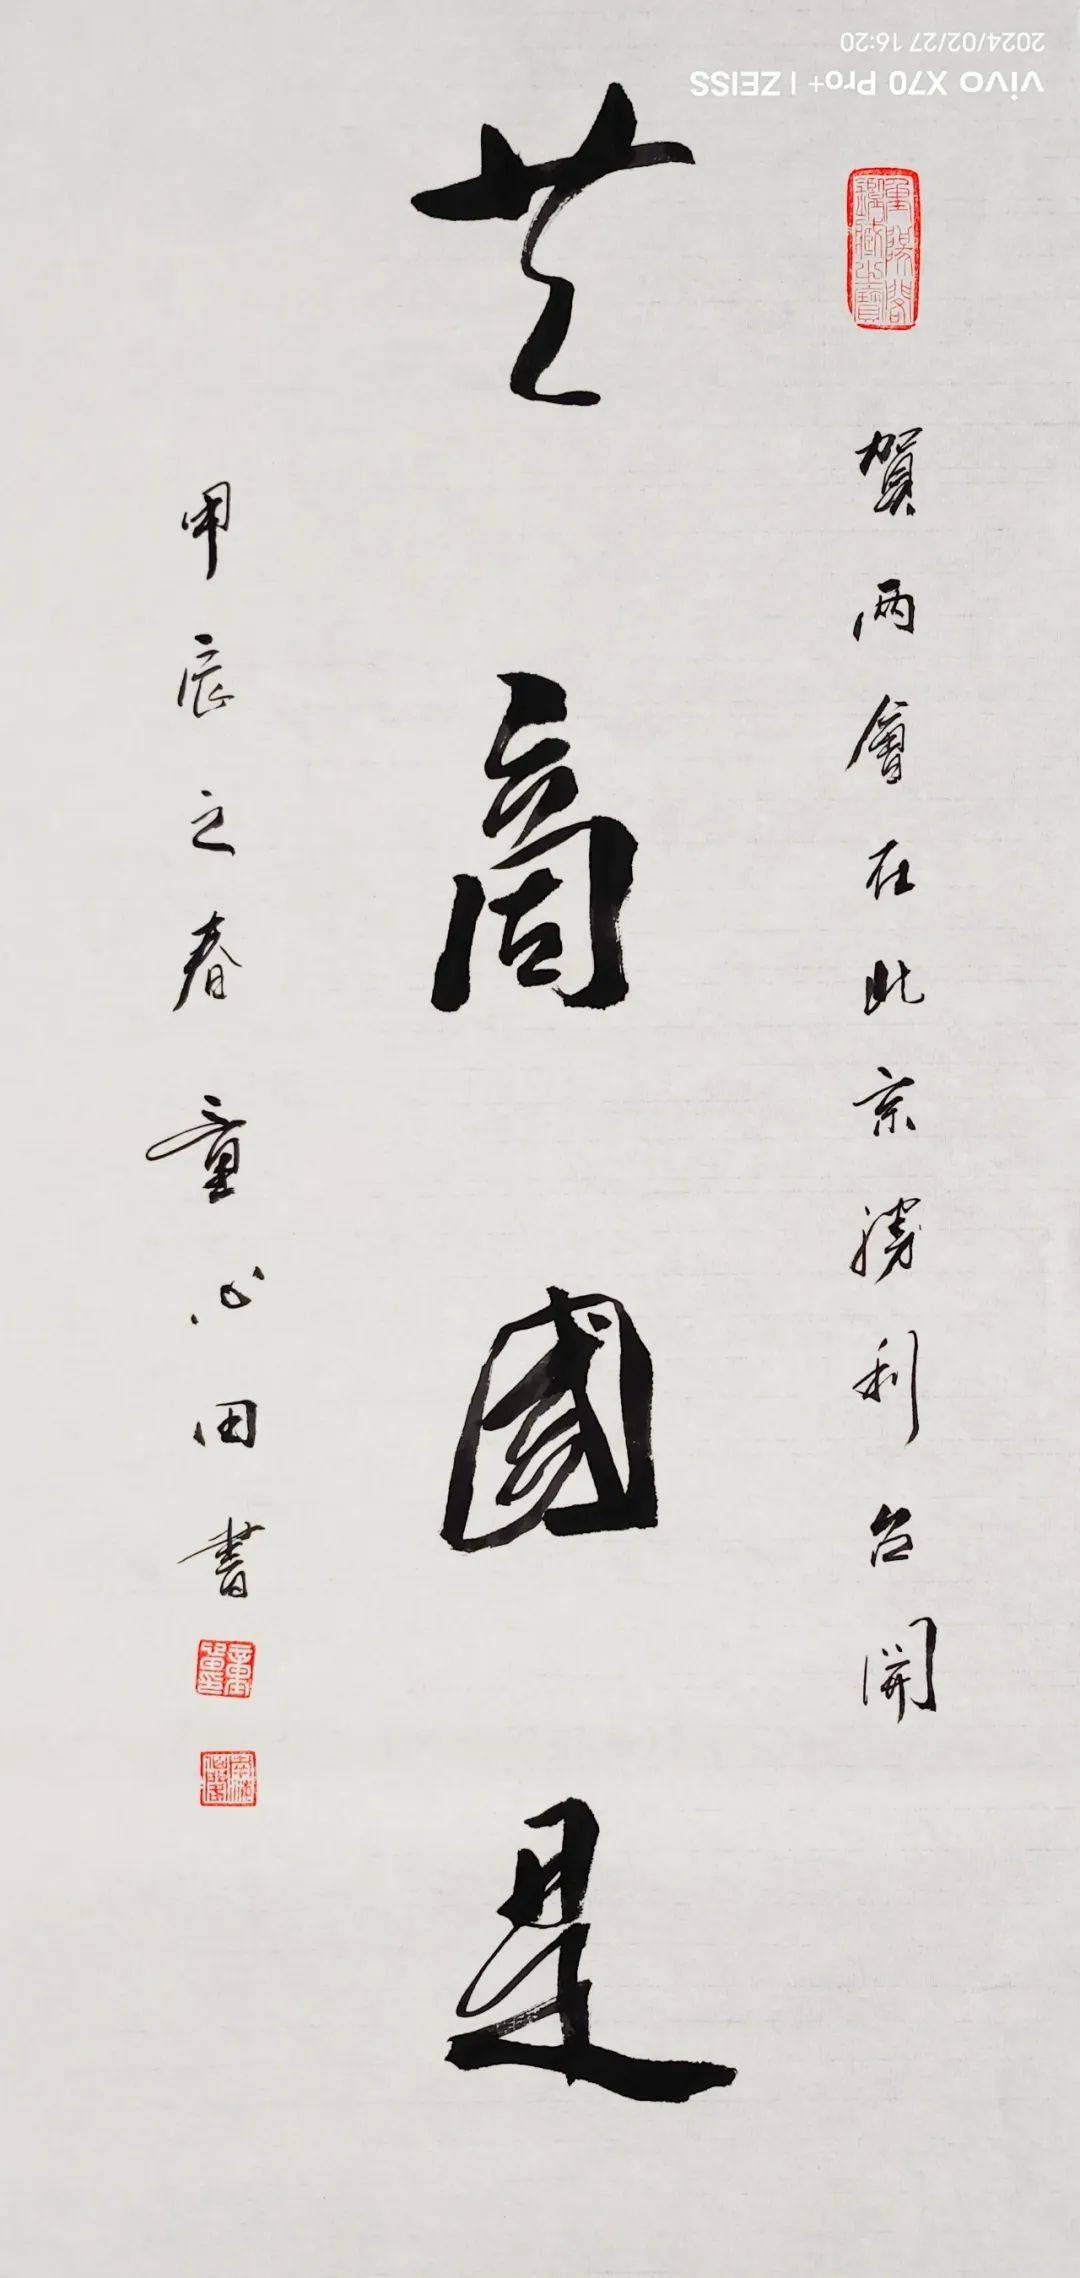 賀两會在北京勝利召開
共商國是
甲辰之春童心田書
vivo X70 Pro+ | ZEISS
2024/02/27 16:20